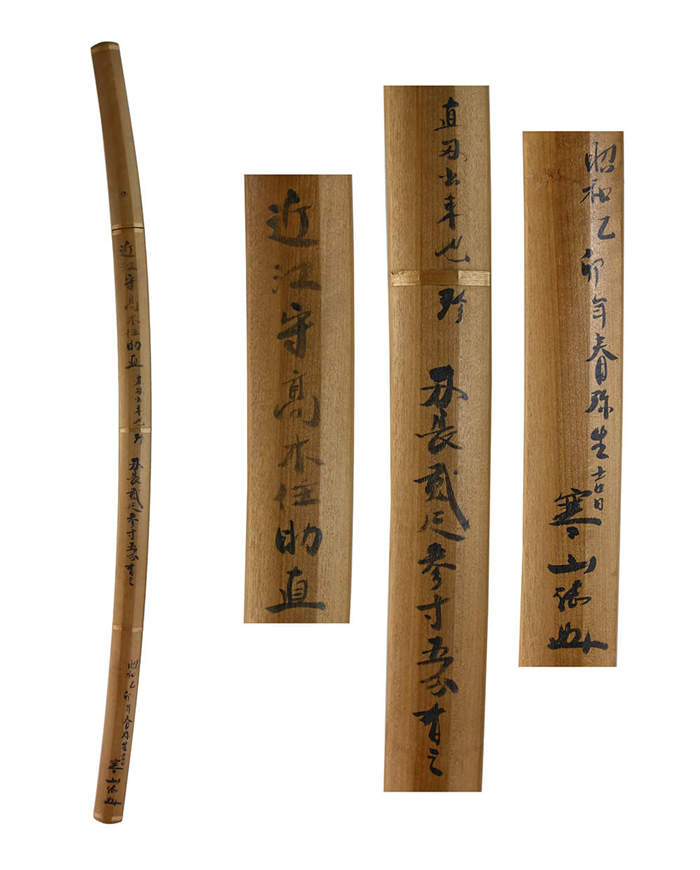 近江守高木住助直 直刃出来也珍 刃長貳尺参寸五分有之 昭和乙卯年春弥生吉日 寒山誌
近江守高木住助直
直刃出来也珍 刃長貳尺参寸五分有之
昭和乙卯年春弥生吉日 寒山誌